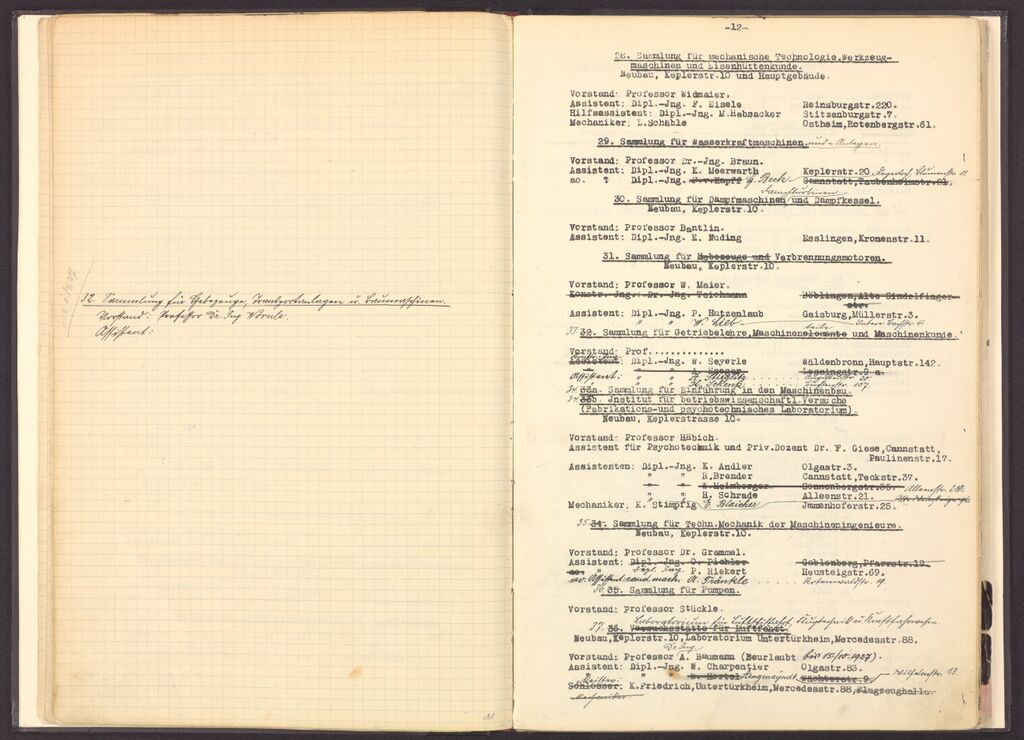 32. Sammlung für Hebezeuge, Transportanlagen u. Baumaschinen.
Vorstand: Professor Dr. Ing Wörnle.
Assistent:
11
-12-
28. Sammlung für mechanische Technologie,Werkzeug-
maschinen und Eisenhüttenkunde.
Neubau, Keplerstr.10 und Hauptgebäude.
Vorstand: Professor Widmaier.
Assistent: Dipl.-Jng. F. Eisele Reinsburgstr.220.
Hilfsassistent: Dipl.-Jng. M.Hebsacker Stitzenburgstr.7.
Mechaniker: L.Schäble Ostheim,Rotenbergstr.61.
29. Sammlung für Wasserkraftmaschinen und - Anlagen.
Vorstand: Professor Dr.-Jng. Braun.
Assistent: Dipl.-Jng. K. Meerwarth Keplerstr.20
ao. " Dipl.-Jng. J.v.Kapff G. Beck Cannstatt,Taubenheimstr.81.
Dampfturbinen
30. Sammlung für Dampfmaschinen und Dampfkessel.
Neubau, Keplerstr.10.
Vorstand: Professor Bantlin.
Assistent: Dipl.-Jng. E. Nuding Esslingen,Kronenstr.11.
31. Sammlung für Hebezeuge und Verbrennungsmotoren.
Neubau, Keplerstr.10.
Vorstand: Professor W. Maier.
Konstr. Jng. Dr.-Jng. Teichmann Böblingen,Alte Sindelfinger-
str.
Assistent: Dipl.-Jng. P. Hutzenlaub Gaisburg,Müllerstr.3.
" W. Lieb
teile
33 32. Sammlung für Getriebelehre,Maschinenelemente und Maschinenkunde.
Vorstand: Prof..............
Assistent: Dipl.-Jng. W. Seyerle Wäldenbronn,Hauptstr.142.
" " A. Seeger Lessingstr.9 a.
Assistent: " "
" " 107.
34. 33a. Sammlung für Einführung in den Maschinenbau.
34. 33b. Jnstitut für betriebswissenschaftl.Versuche
(Fabrikations-und psychotechnisches Laboratorium).
Neubau, Keplerstrasse 10.
Vorstand: Professor Häbich.
Assistent für Psychotechnik und Priv.Dozent Dr. F. Giese,Cannstatt,
Paulinenstr.17.
Assistenten: Dipl.-Jng. K. Andler Olgastr.3.
" " R.Brender Cannstatt,Teckstr.37.
" " W.Heimberger Sonnenbergstr.35.
" " H. Schrade Alleenstr.21.
Mechaniker: K. Stimpfig E. Blaicher Jmmenhoferstr.25.
35 34. Sammlung für Techn.Mechanik der Maschineningenieure.
Neubau, Keplerstr.10.
Vorstand: Professor Dr. Grammel.
Assistent: Dipl.-Jng. O. Pichler Gablenberg,Pfarrstr.12.
ao. " Dipl. Ing. P. Riekert Heusteigstr.69.
ao. Assistent: cand. mach. A. Fränkle
36 35. Sammlung für Pumpen.
Vorstand: Professor Stückle.
Laboratorium für Luftschiffahrt, Flugtechnik u. Kraftfahrwesen
37. 36. Versuchsstätte für Luftfahrt
Neubau,Keplerstr.10,Laboratorium Untertürkheim,Mercedesstr.88.
Dr. Ing
Vorstand: Professor A. Baumann (Beurlaubt bis 15/10.1927).
Assistent: Dipl.-Jng. W. Charpentier Olgastr.83.
" W. Hertel Wächterstr.9 Wilhelmstr. 13.
Meister:
Schlosser: K.Friedrich,Untertürkheim,Mercedesstr.88,Flugzeughalle.
Mechaniker